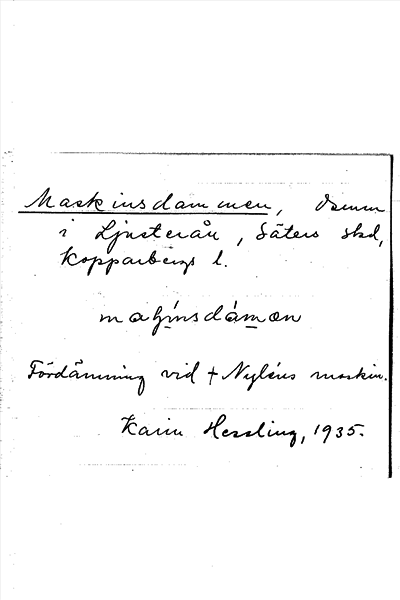 Maskinsdammen, damm
i Ljusterån, Säters skd,
Kopparbergs l.
maʃinsdámæn
Fördämning vid + Nyléns maskin.
Karin Hessling, 1935.